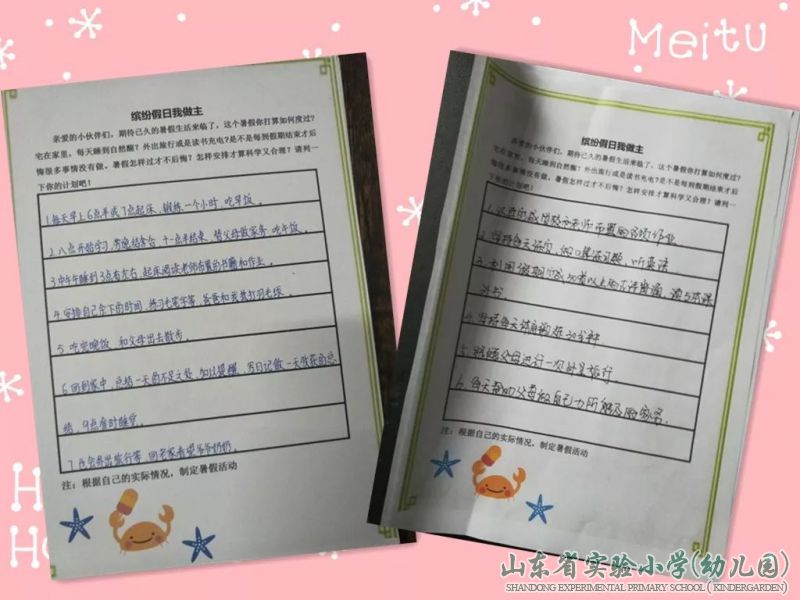 Meitu
缤纷假日我做主
亲爱的小伙伴们，期待已久的暑假生活来临了，这个暑假你打算如何度过?
宅在家里，每天睡到自然醒？外出旅行或是读书充电?是不是每到假期结束才后
悔很多事情没有做。暑假怎样过才不后悔？怎样安排才算科学又合理？请列一
下你的计划吧！
1.每天早上6点半或7点起床，锻炼一个小时 吃早饭。
2.八点开始学习，劳逸结合 十一点半结束，替父母做家务 吃午饭。
3.中午午睡到3点左右，起床阅读老师布置的书籍和作业。
4.安排自己余下的时间，练习毛笔字等，爸爸和我打羽毛球。
5.吃完晚饭，和父母出去散步。
6.回到家中，总结一天的不足之处，加以提醒，写日记做一天收获的总
结，9点准时睡觉。
7.也会外出旅行等，回老家看望爷爷奶奶。
注：根据自己的实际情况，制定暑假活动
缤纷假日我做主
亲爱的小伙伴们，期待已久的暑假生活来临了，这个暑假你打算如何度过?
宅在家里，每天睡到自然醒？外出旅行或是读书充电?是不是每到假期结束才后
悔很多事情没有做。暑假怎样过才不后悔？怎样安排才算科学又合理？请列一
下你的计划吧！
1.认真完成学校和老师布置的各项作业
2.坚持每天练字，做口算练习题，听英语。
3.利用假期 以上的 读
书。
4.坚持每天体育锻炼30分钟
5.跟随父母进行一次外出旅行。
6.每天帮助父母做自己力所能及的家务。
注：根据自己的实际情况，制定暑假活动
山东省实验小学(幼儿园)
SHANDONG EXPERIMENTAL PRIMARY SCHOOL ( KINDERGARDEN)